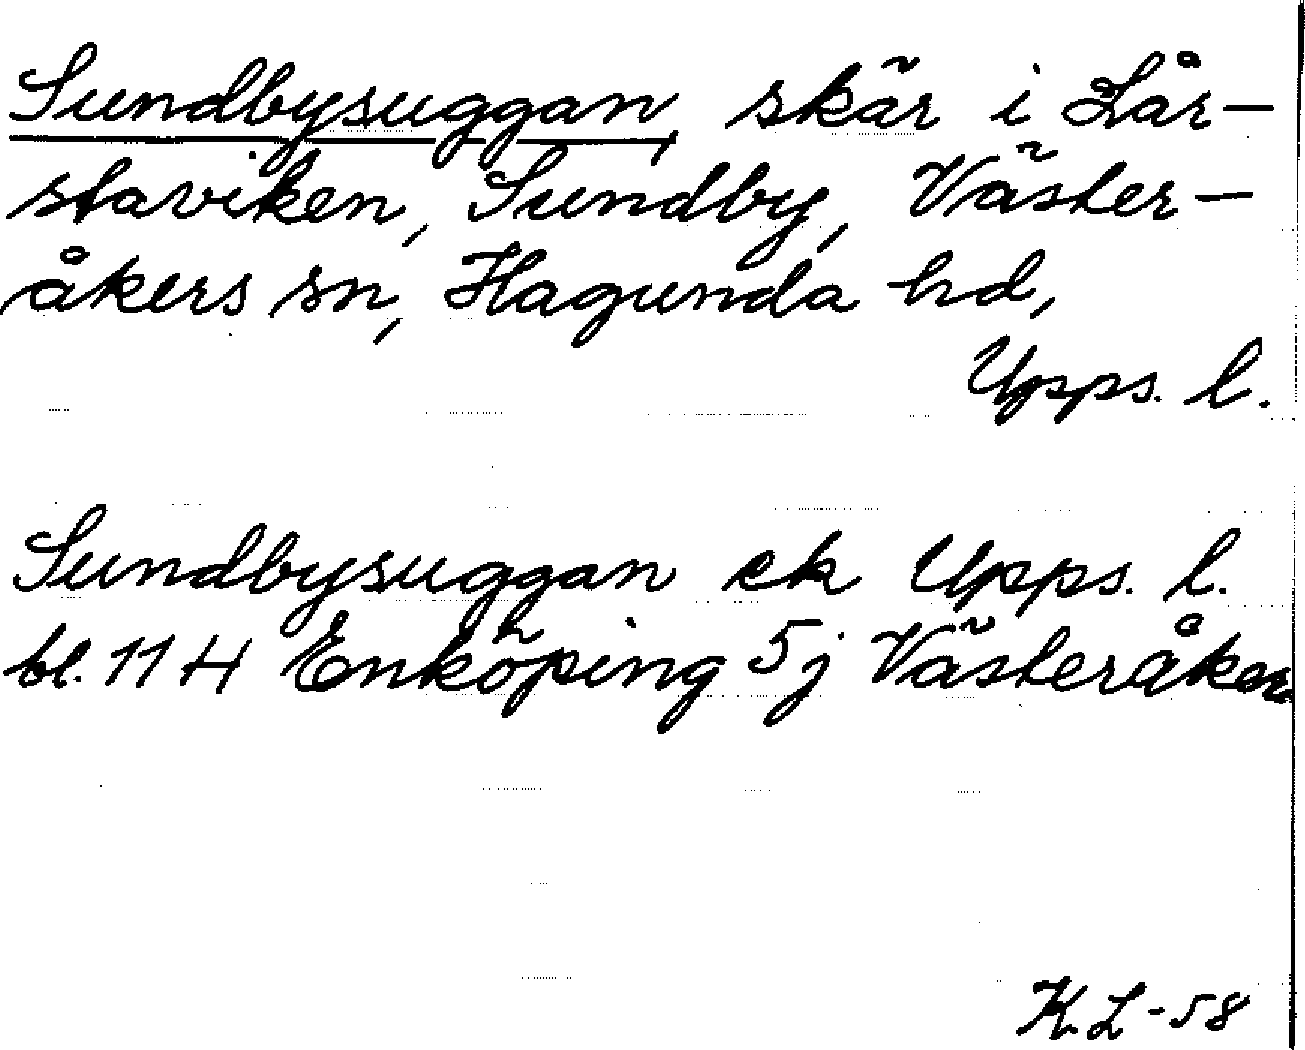 Sundbysuggan, skär i Lår-
staviken, Sundby, Väster-
åkers sn, Hagunda hd,
Upps. l.
Sundbysuggan ek Upps. l.
bl. 11 H Enköping 5j Västeråker
K.L-58